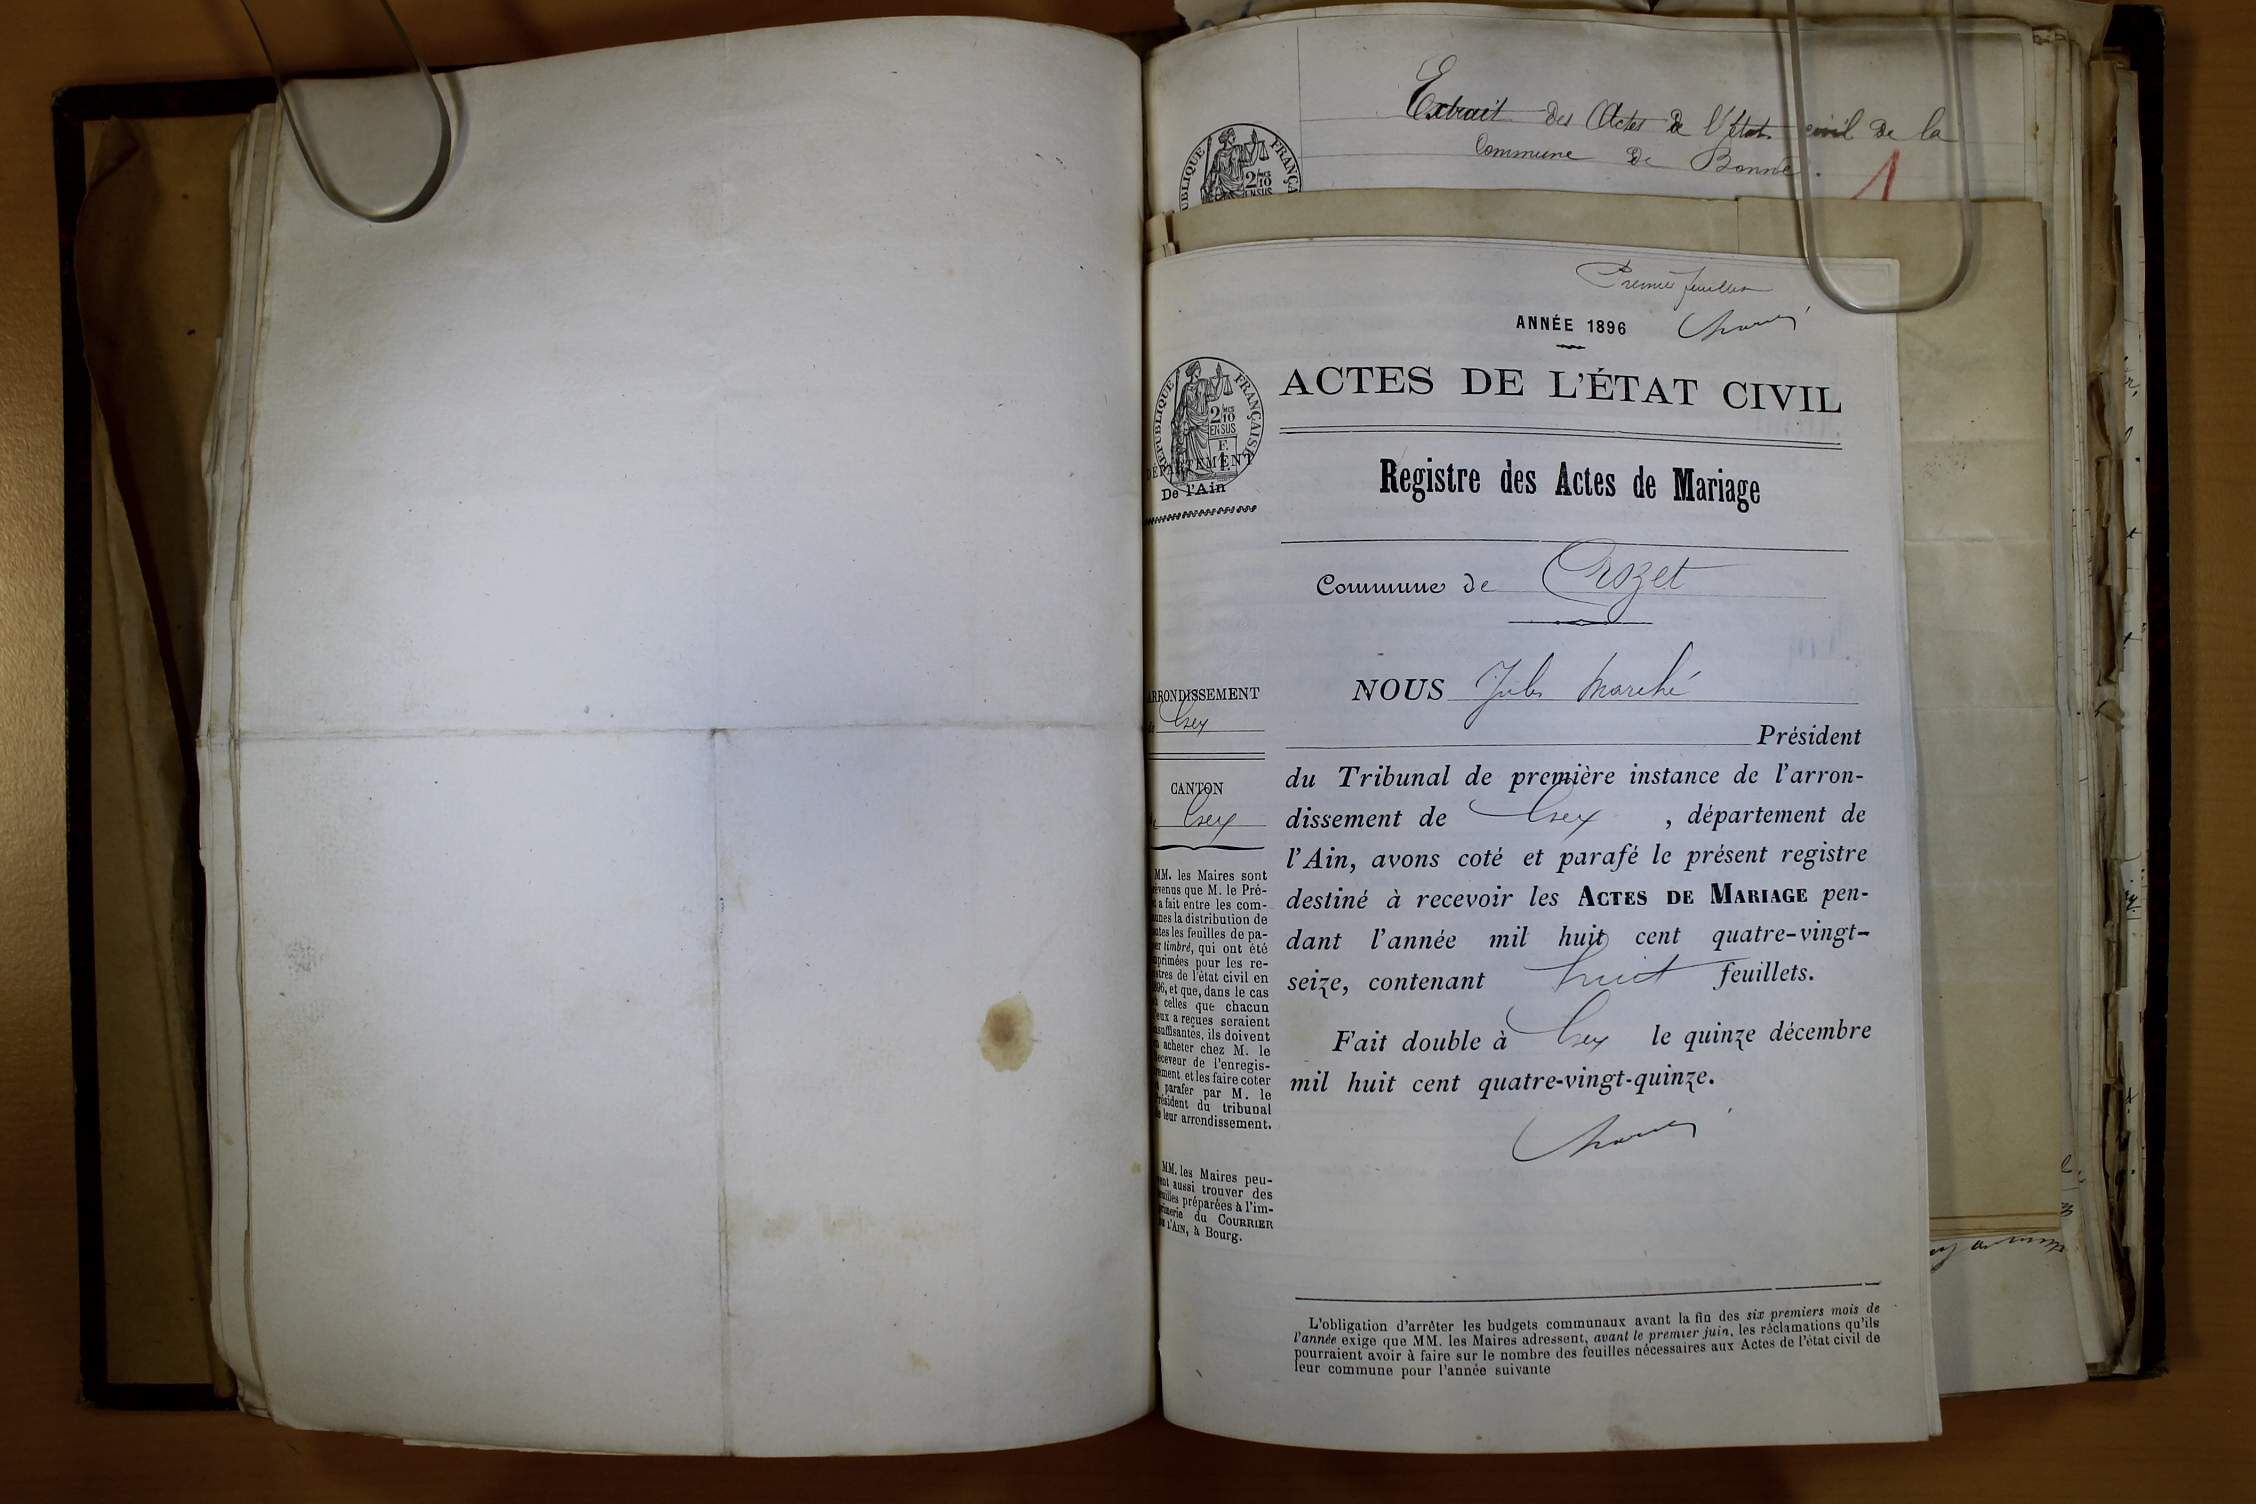 Extrait des Actes de l'état civil de la
Commune de Bonne.
1
RÉPUBLIQUE FRANÇAISE
Premier feuillet
ANNÉE 1896
ACTES DE L'ÉTAT CIVIL
RÉPUBLIQUE FRANÇAISE
DÉPARTEMENT
De l'Ain
Registre des Actes de Mariage
Commune de Crozet
ARRONDISSEMENT
de Gex
CANTON
de Gex
MM. les Maires sont
prévenus que M. le Pré-
fet a fait entre les com-
munes la distribution de
toutes les feuilles de pa-
pier timbré, qui ont été
imprimées pour les re-
gistres de l'état civil en
1896, et que, dans le cas
où celles que chacun
d'eux a reçues seraient
insuffisantes, ils doivent
en acheter chez M. le
receveur de l'enregis-
trement et les faire coter
et parafer par M. le
Président du tribunal
de leur arrondissement.
MM. les Maires peu-
vent aussi trouver des
feuilles préparées à l'im-
primerie du COURRIER
DE L'AIN, à Bourg.
NOUS Jules Marché
Président
du Tribunal de première instance de l'arron-
dissement de Gex , département de
l'Ain, avons coté et parafé le présent registre
destiné à recevoir les ACTES DE MARIAGE pen-
dant l'année mil huit cent quatre-vingt-
seize, contenant huit feuillets.
Fait double à Gex le quinze décembre
mil huit cent quatre-vingt-quinze.
L'obligation d'arrêter les budgets communaux avant la fin des six premiers mois de
l'année exige que MM. les Maires adressent, avant le premier juin, les réclamations qu'ils
pourraient avoir à faire sur le nombre des feuilles nécessaires aux Actes de l'état civil de
leur commune pour l'année suivante